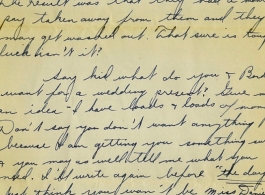 result was that they had a mon
pay taken away from them and they
may get washed out. That sure is tough
luck isn't it?
Say kid what do you & Bud
want for a wedding present? Give me
an idea - I have loads & loads of mon
Don't say you don't want anything
because I am getting you something
& you may as well tell me what you
need. I'll write again before the day
Just think you won't be Miss